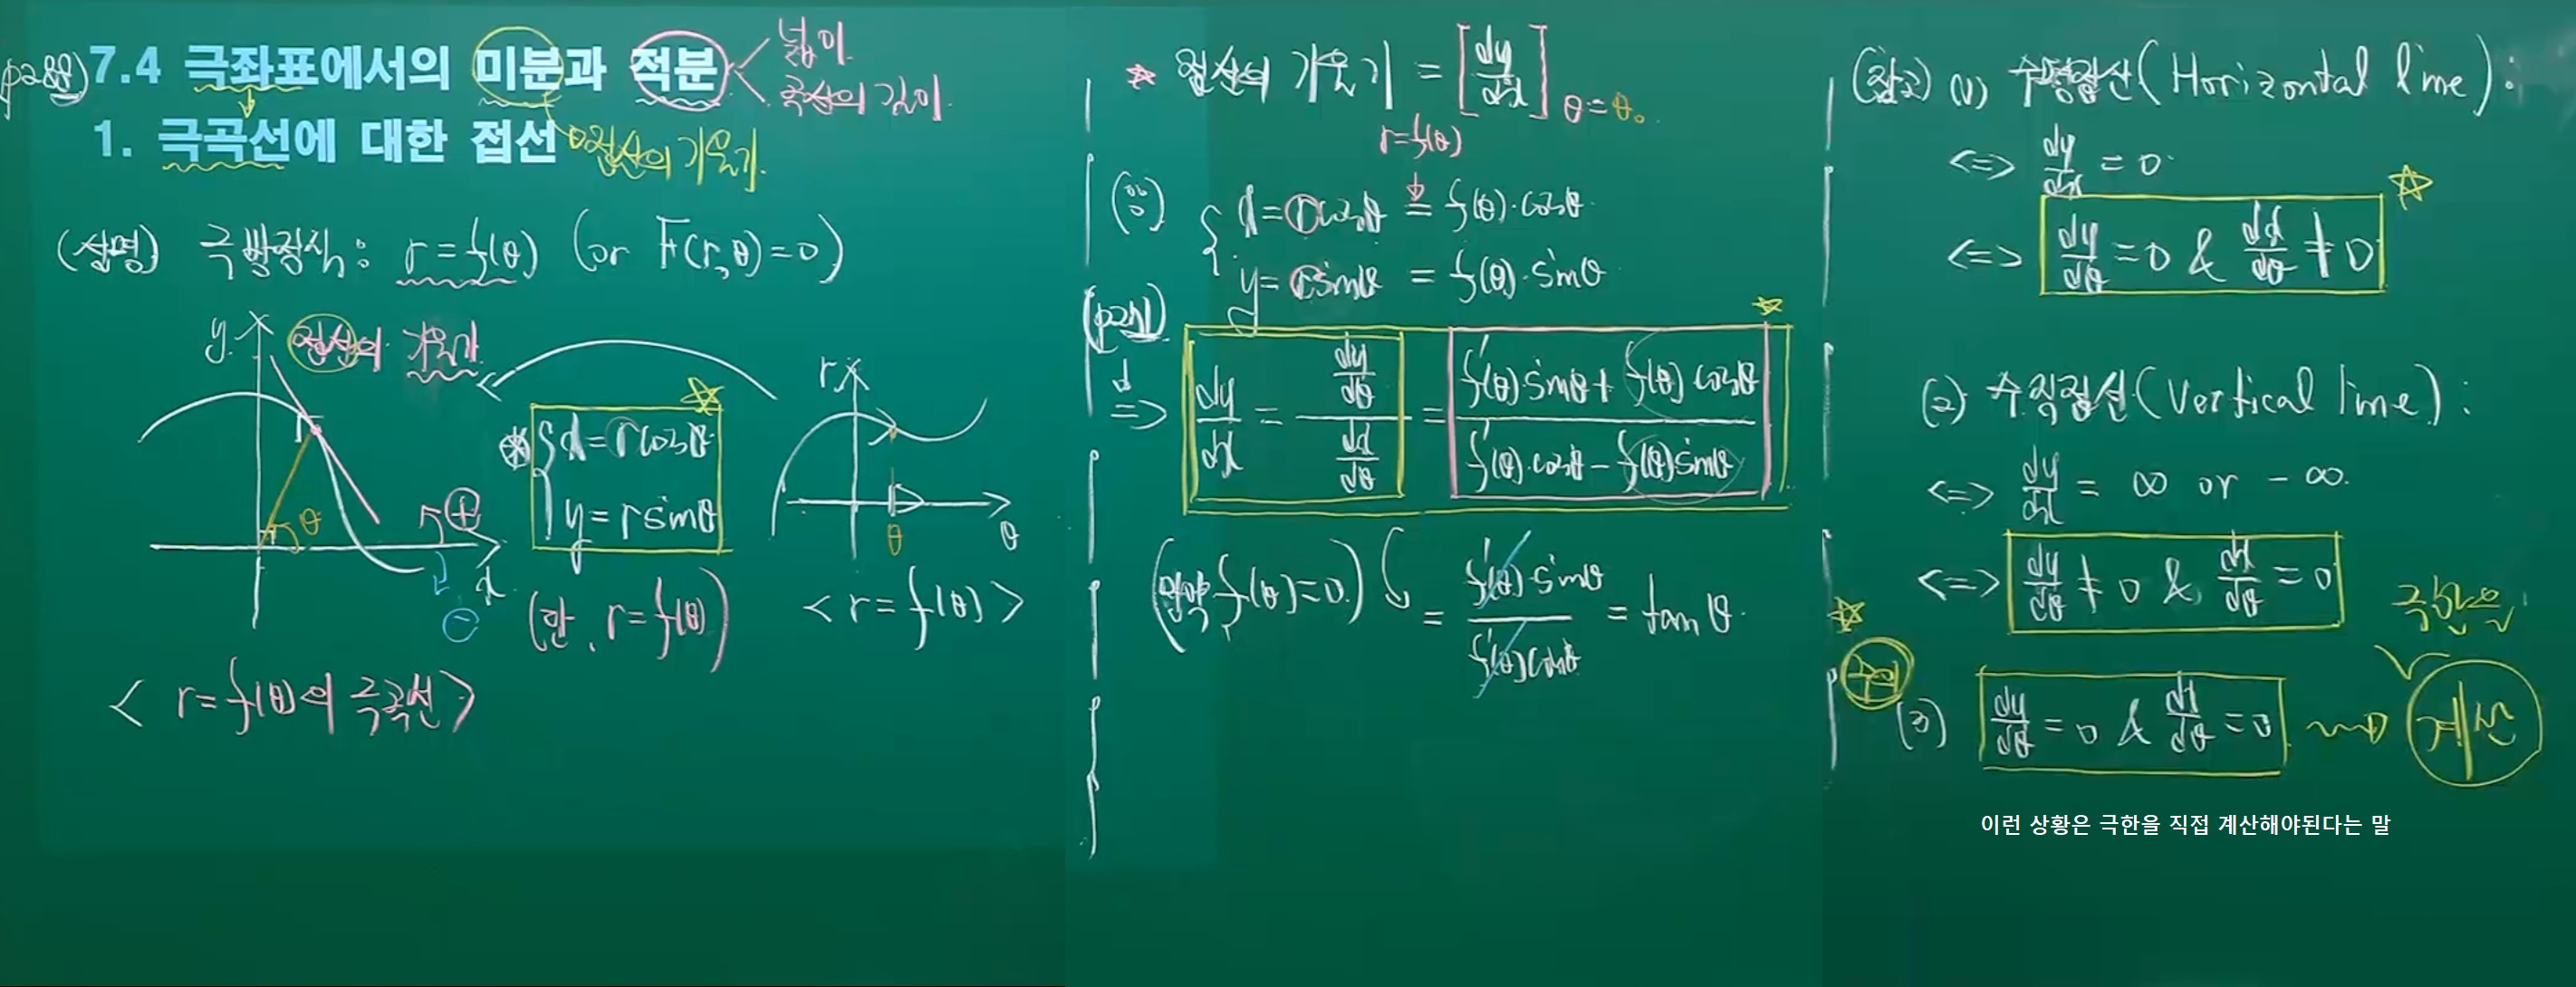 (p288) 7.4 극좌표에서의 미분과 적분 < 넓이
곡선의 길이
1. 극곡선에 대한 접선 → 접선의 기울기
(설명) 극방정식 : r = f(θ) (or F(r, θ) = 0)
y 접선의 기울기
θ
⊕
⊖
x
< r = f(θ)의 극곡선 >
⊛ { x = r cosθ
y = r sinθ
(단, r = f(θ))
r
θ
θ
< r = f(θ) >
☆ 접선의 기울기 = [dy/dx] θ = θ₀
r = f(θ)
(∵) { x = r cosθ = f(θ)·cosθ
y = r sinθ = f(θ)·sinθ
⇒ dy/dx = (dy/dθ)/(dx/dθ) = (f'(θ)·sinθ + f(θ)cosθ)/(f'(θ)·cosθ − f(θ)sinθ)
(만약 f(θ) = 0) = (f'(θ)·sinθ)/(f'(θ)cosθ) = tanθ
(참고) (1) 수평접선 (Horizontal line) :
<=> dy/dx = 0
<=> dy/dθ = 0 & dx/dθ ≠ 0 ☆
(2) 수직접선 (Vertical line) :
<=> dy/dx = ∞ or −∞
<=> dy/dθ ≠ 0 & dx/dθ = 0
☆ 주의 (3) dy/dθ = 0 & dx/dθ = 0 ⇝ 극한을 계산
이런 상황은 극한을 직접 계산해야된다는 말